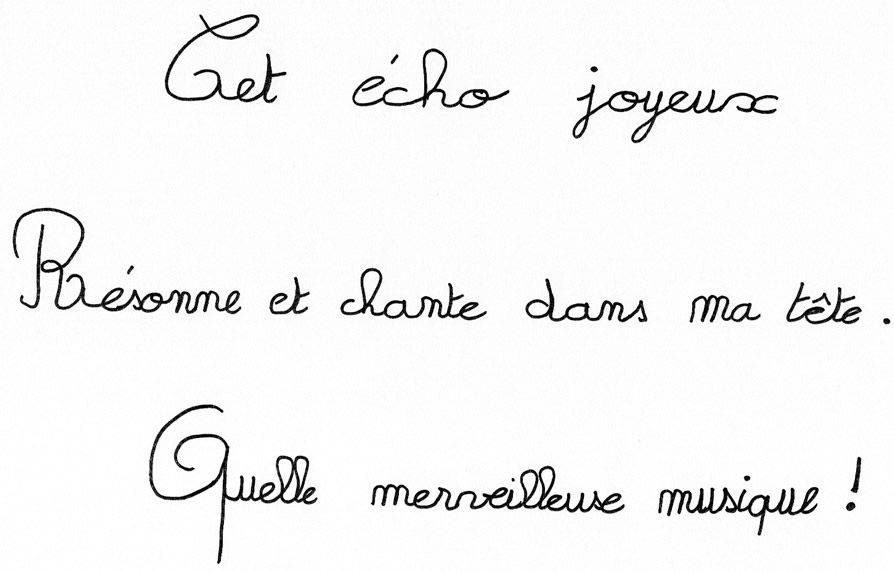 Cet écho joyeux
Résonne et chante dans ma tête.
Quelle merveilleuse musique !